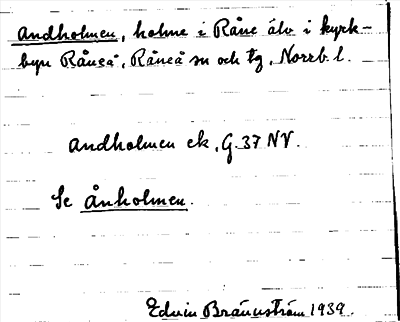 Andholmen, holme i Råne älv i kyrk-
byn Råneå, Råneå sn och tg, Norrb. l.
Andholmen ek, G. 37 NV.
Se Ånholmen.
Edvin Brännström 1939.